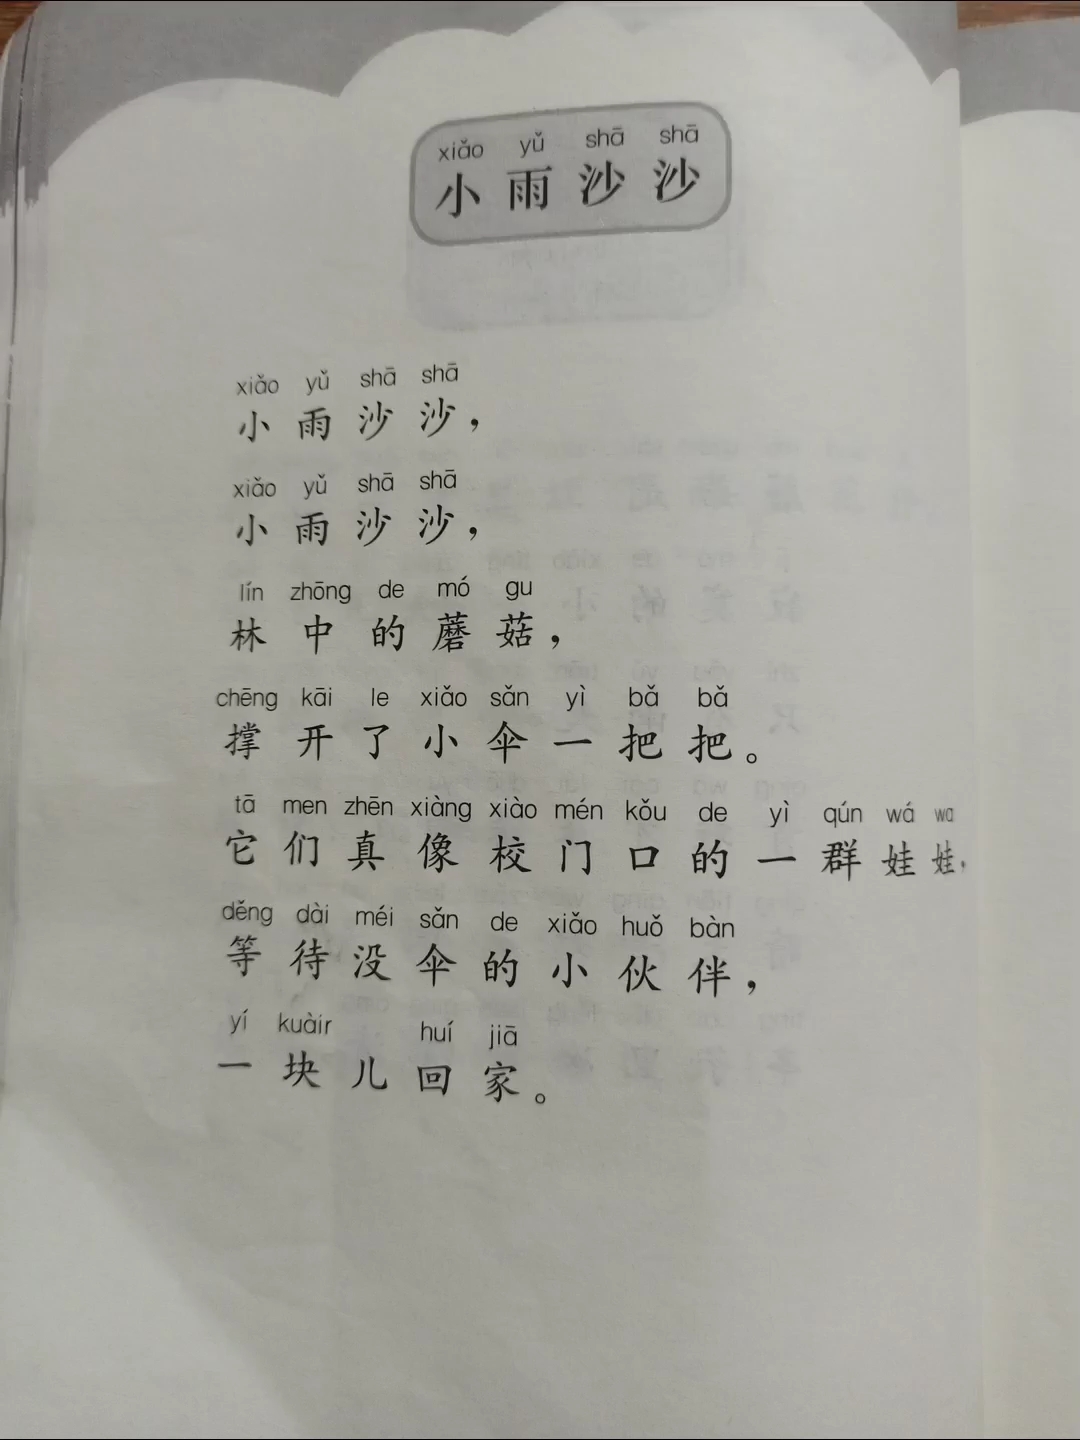 xiǎo yǔ shā shā
小雨沙沙
xiǎo yǔ shā shā
小雨沙沙，
xiǎo yǔ shā shā
小雨沙沙，
lín zhōng de mó gu
林中的蘑菇，
chēng kāi le xiǎo sǎn yì bǎ bǎ
撑开了小伞一把把。
tā men zhēn xiàng xiào mén kǒu de yì qún wá wa
它们真像校门口的一群娃娃，
děng dài méi sǎn de xiǎo huǒ bàn
等待没伞的小伙伴，
yí kuàir huí jiā
一块儿回家。